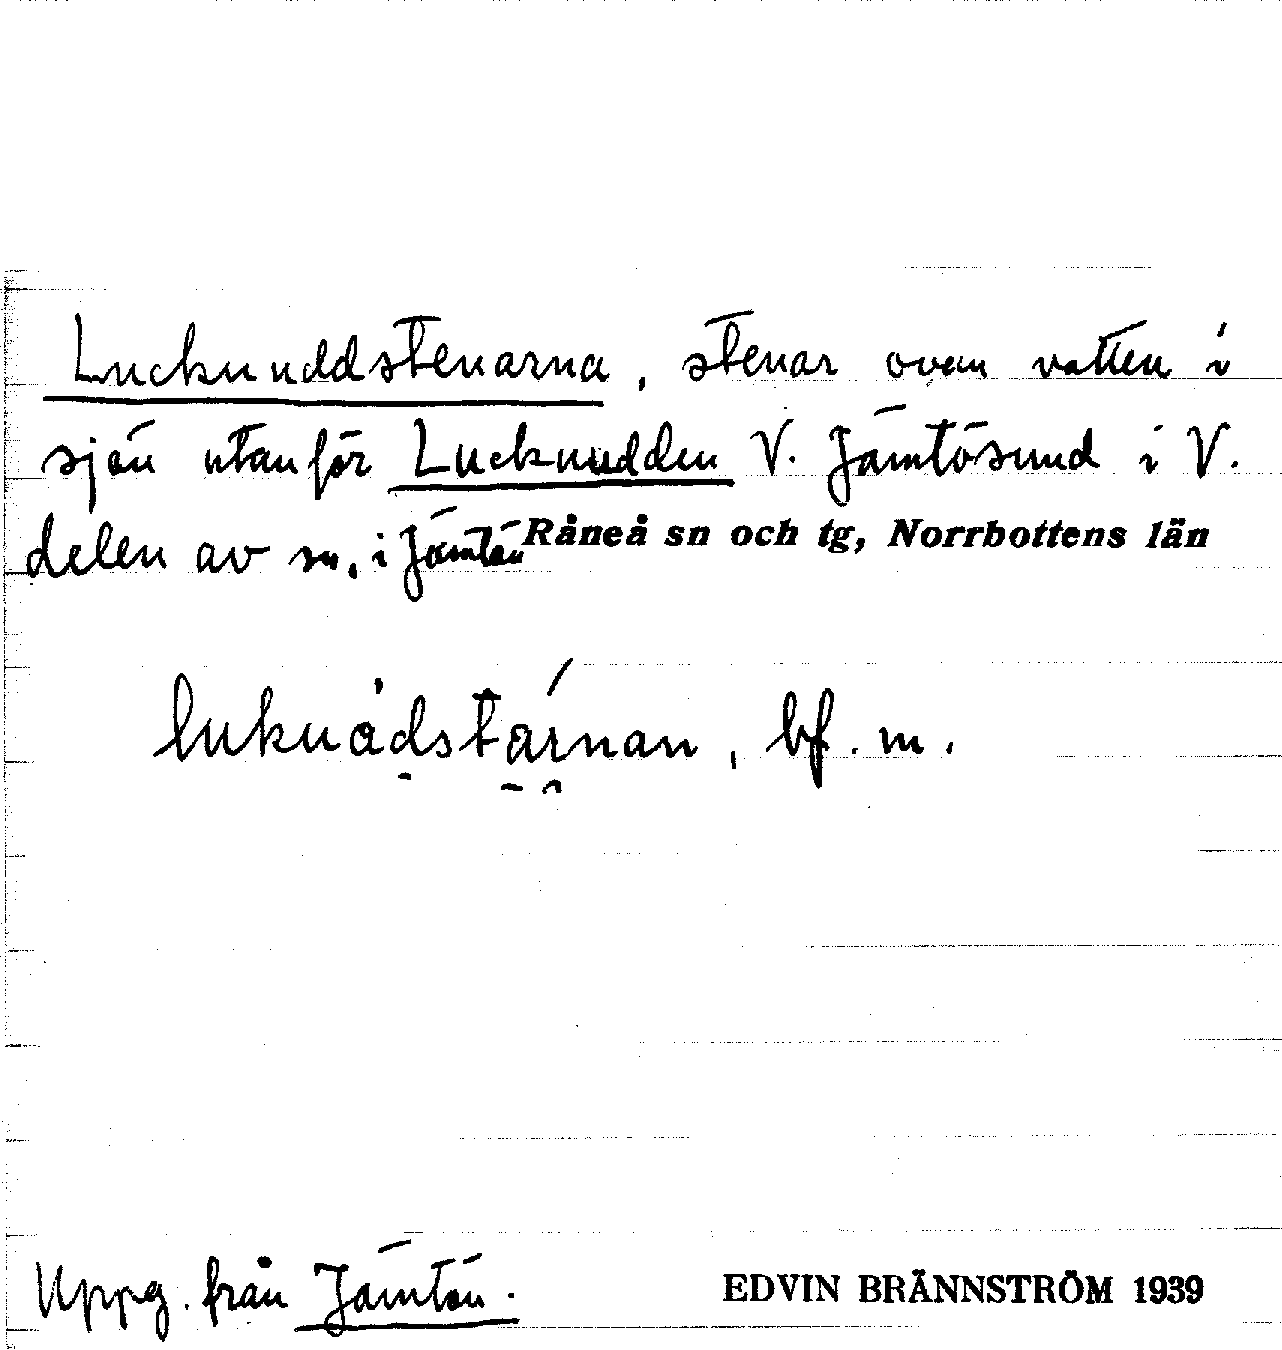 Lucknuddstenarna, stenar ovan vatten i
sjön utanför Lucknudden V. Jämtösund i V.
delen av sn, i Jämtön Råneå sn och tg, Norrbottens län
luknådstárnan, bf. m.
Uppg. från Jämtön.
EDVIN BRÄNNSTRÖM 1939